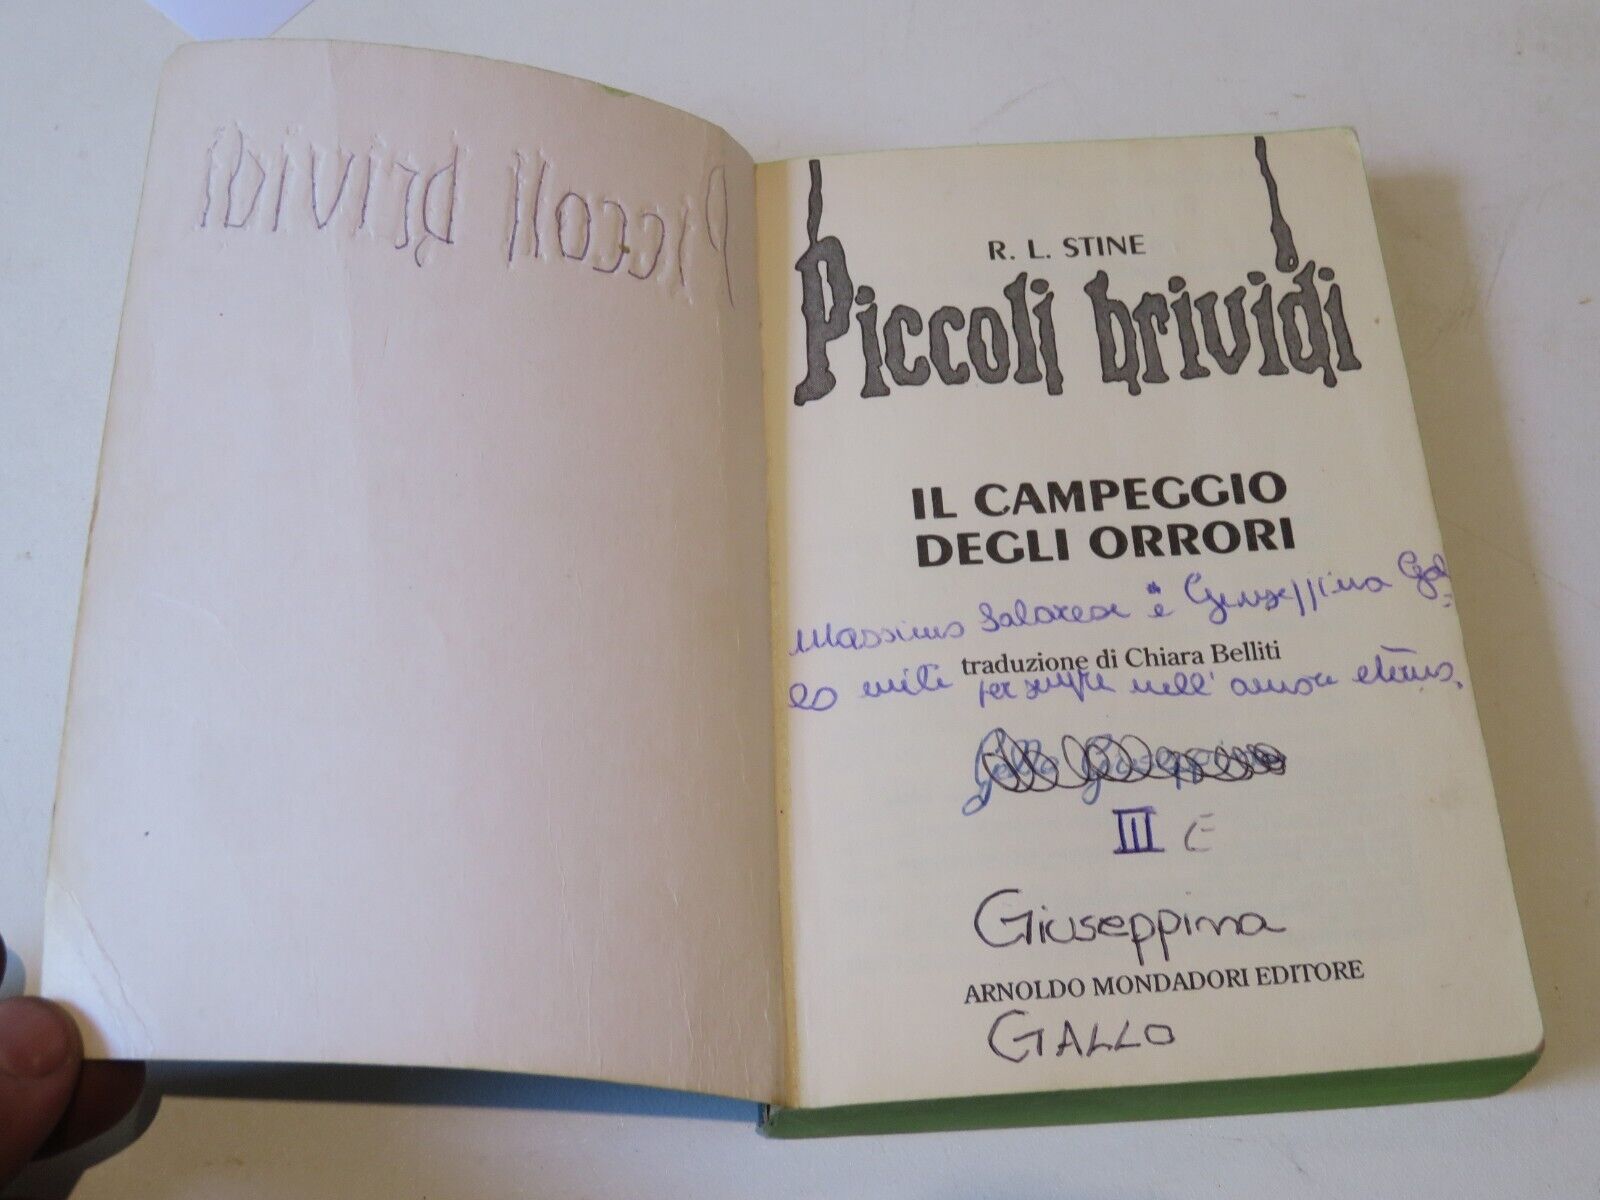 Piccoli brividi
R. L. STINE
Piccoli brividi
IL CAMPEGGIO
DEGLI ORRORI
Massimo e Giuseppina Gal
traduzione di Chiara Belliti
lo uniti per sempre nell'amore eterno.
III E
Giuseppina
ARNOLDO MONDADORI EDITORE
GALLO